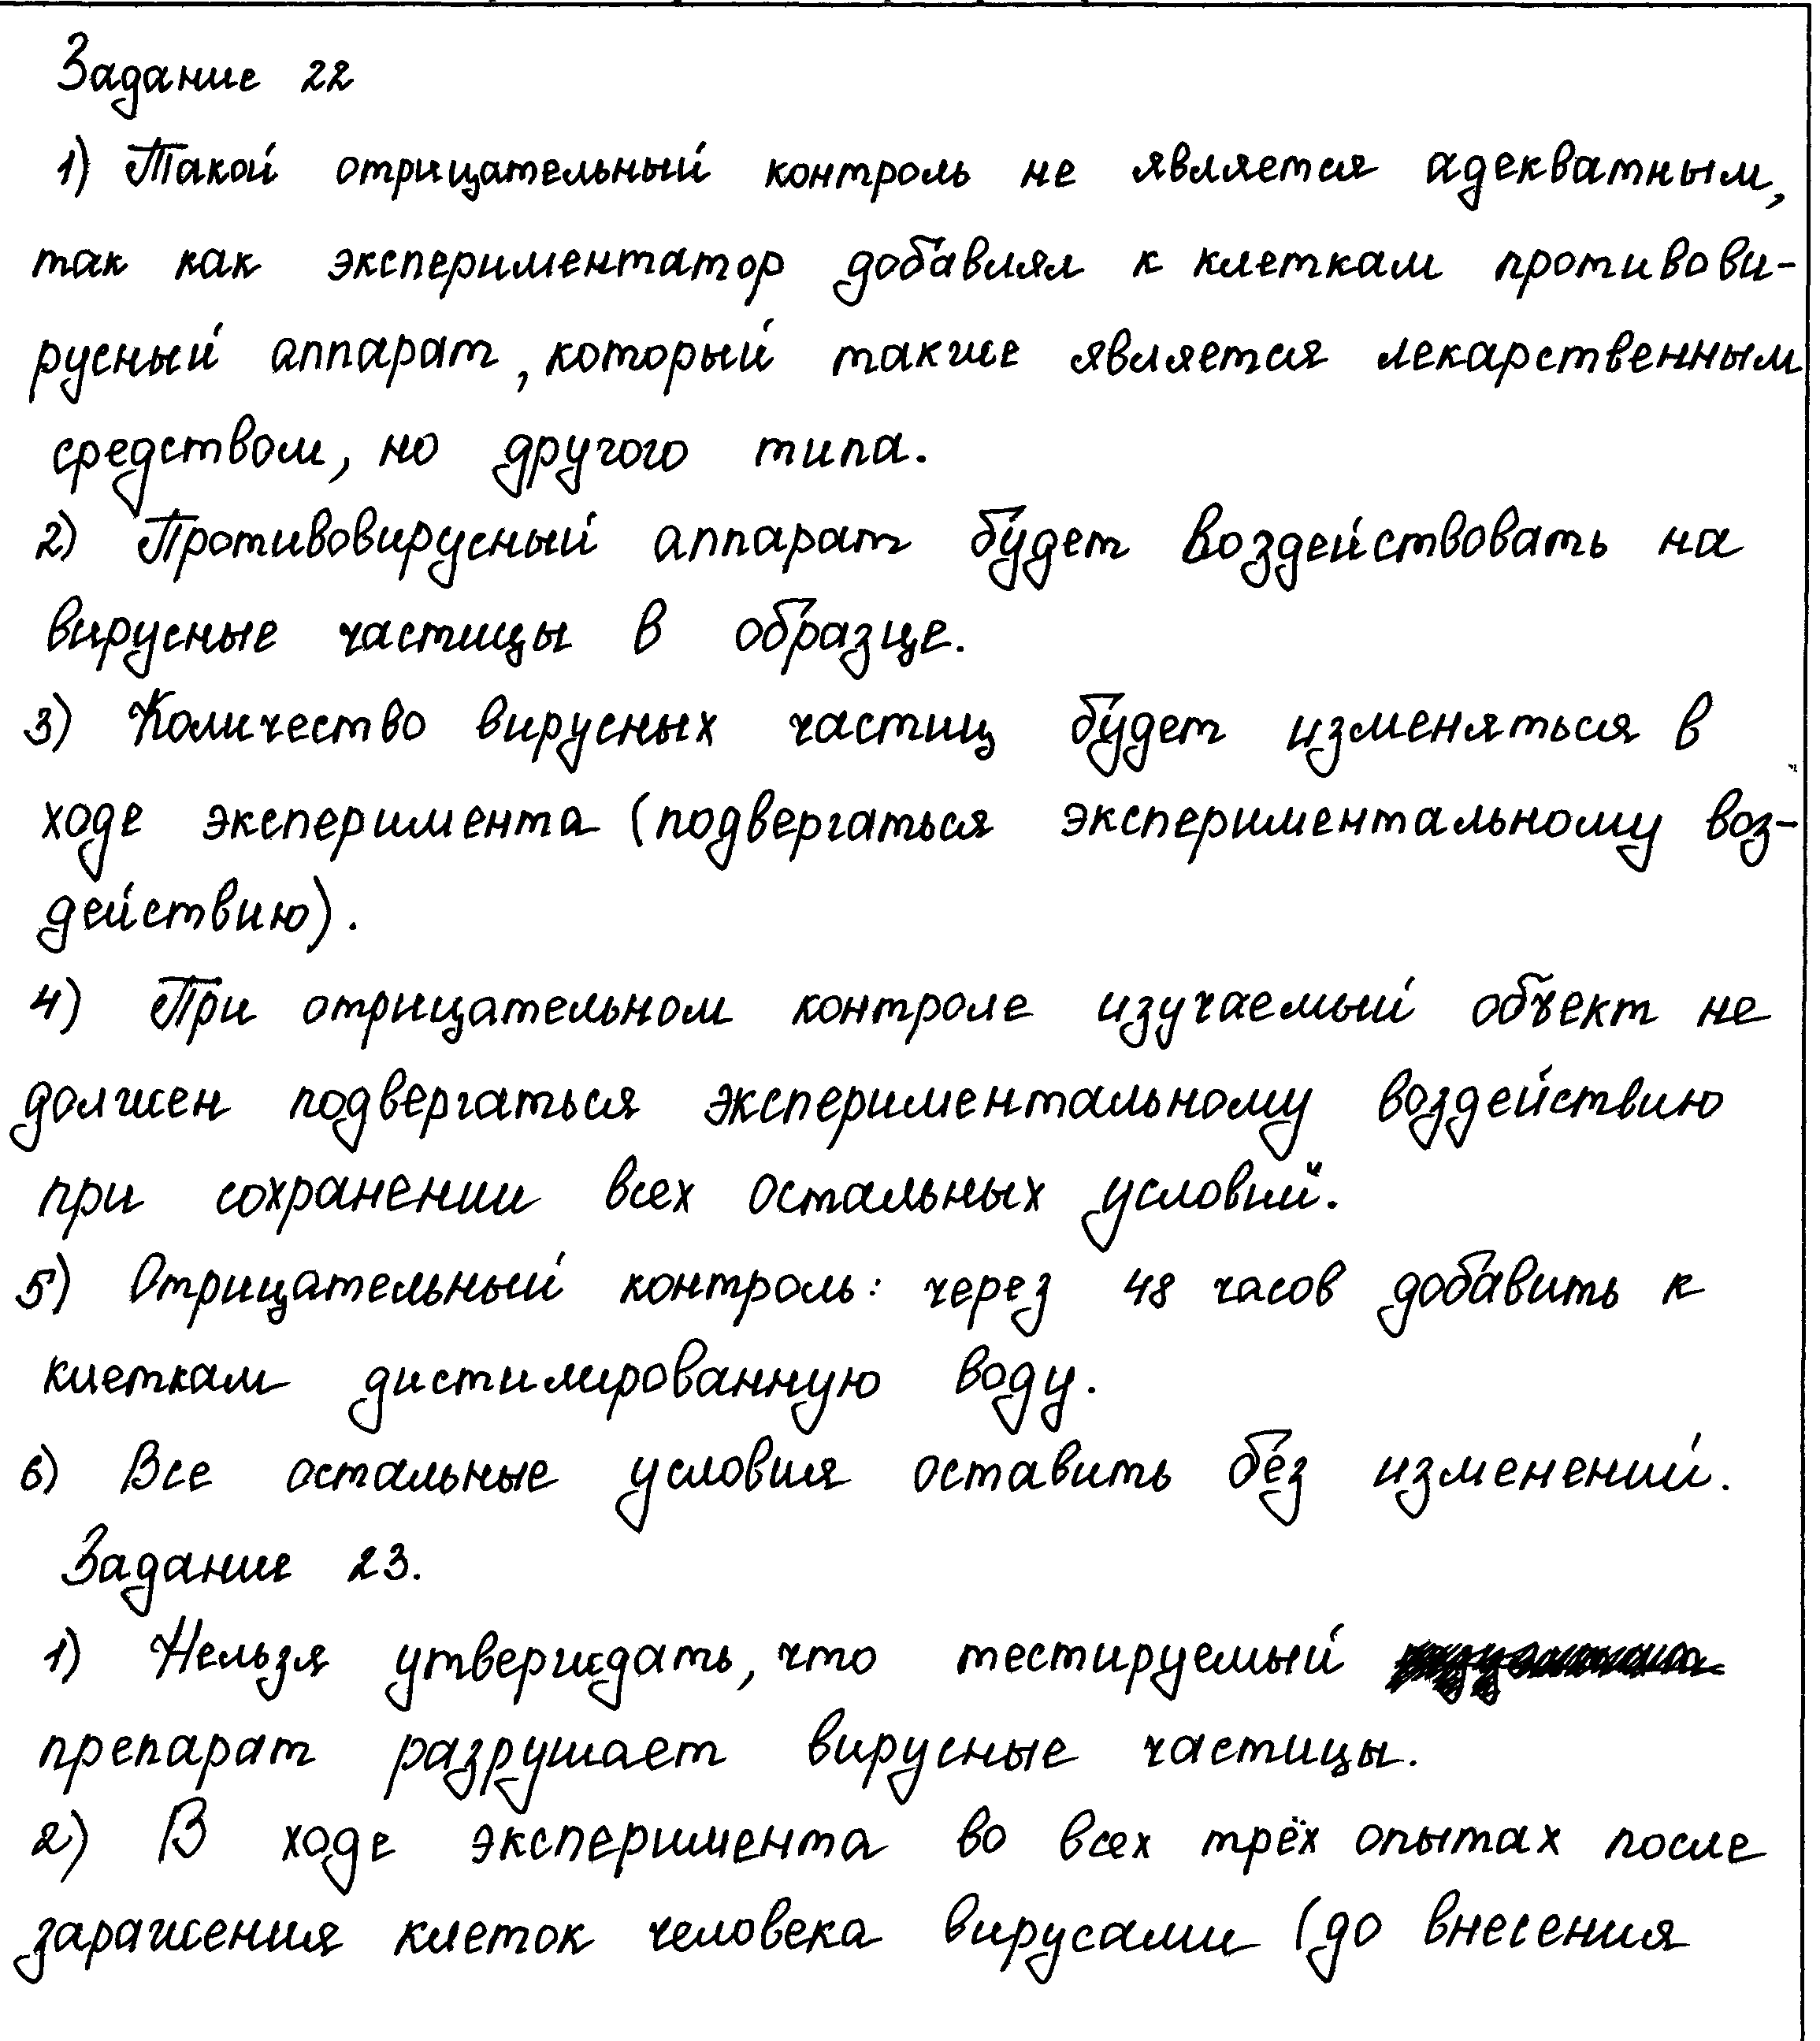 Задание 22
1) Такой отрицательный контроль не является адекватным,
так как экспериментатор добавлял к клеткам противови-
русный аппарат, который также является лекарственным
средством, но другого типа.
2) Противовирусный аппарат будет воздействовать на
вирусные частицы в образце.
3) Количество вирусных частиц будет изменяться в
ходе эксперимента (подвергаться экспериментальному воз-
действию).
4) При отрицательном контроле изучаемый объект не
должен подвергаться экспериментальному воздействию
при сохранении всех остальных условий.
5) Отрицательный контроль: через 48 часов добавить к
клеткам дистилированную воду.
6) Все остальные условия оставить без изменений.
Задание 23.
1) Нельзя утверждать, что тестируемый
препарат разрушает вирусные частицы.
2) В ходе эксперимента во всех трёх опытах после
заражения клеток человека вирусами (до внесения